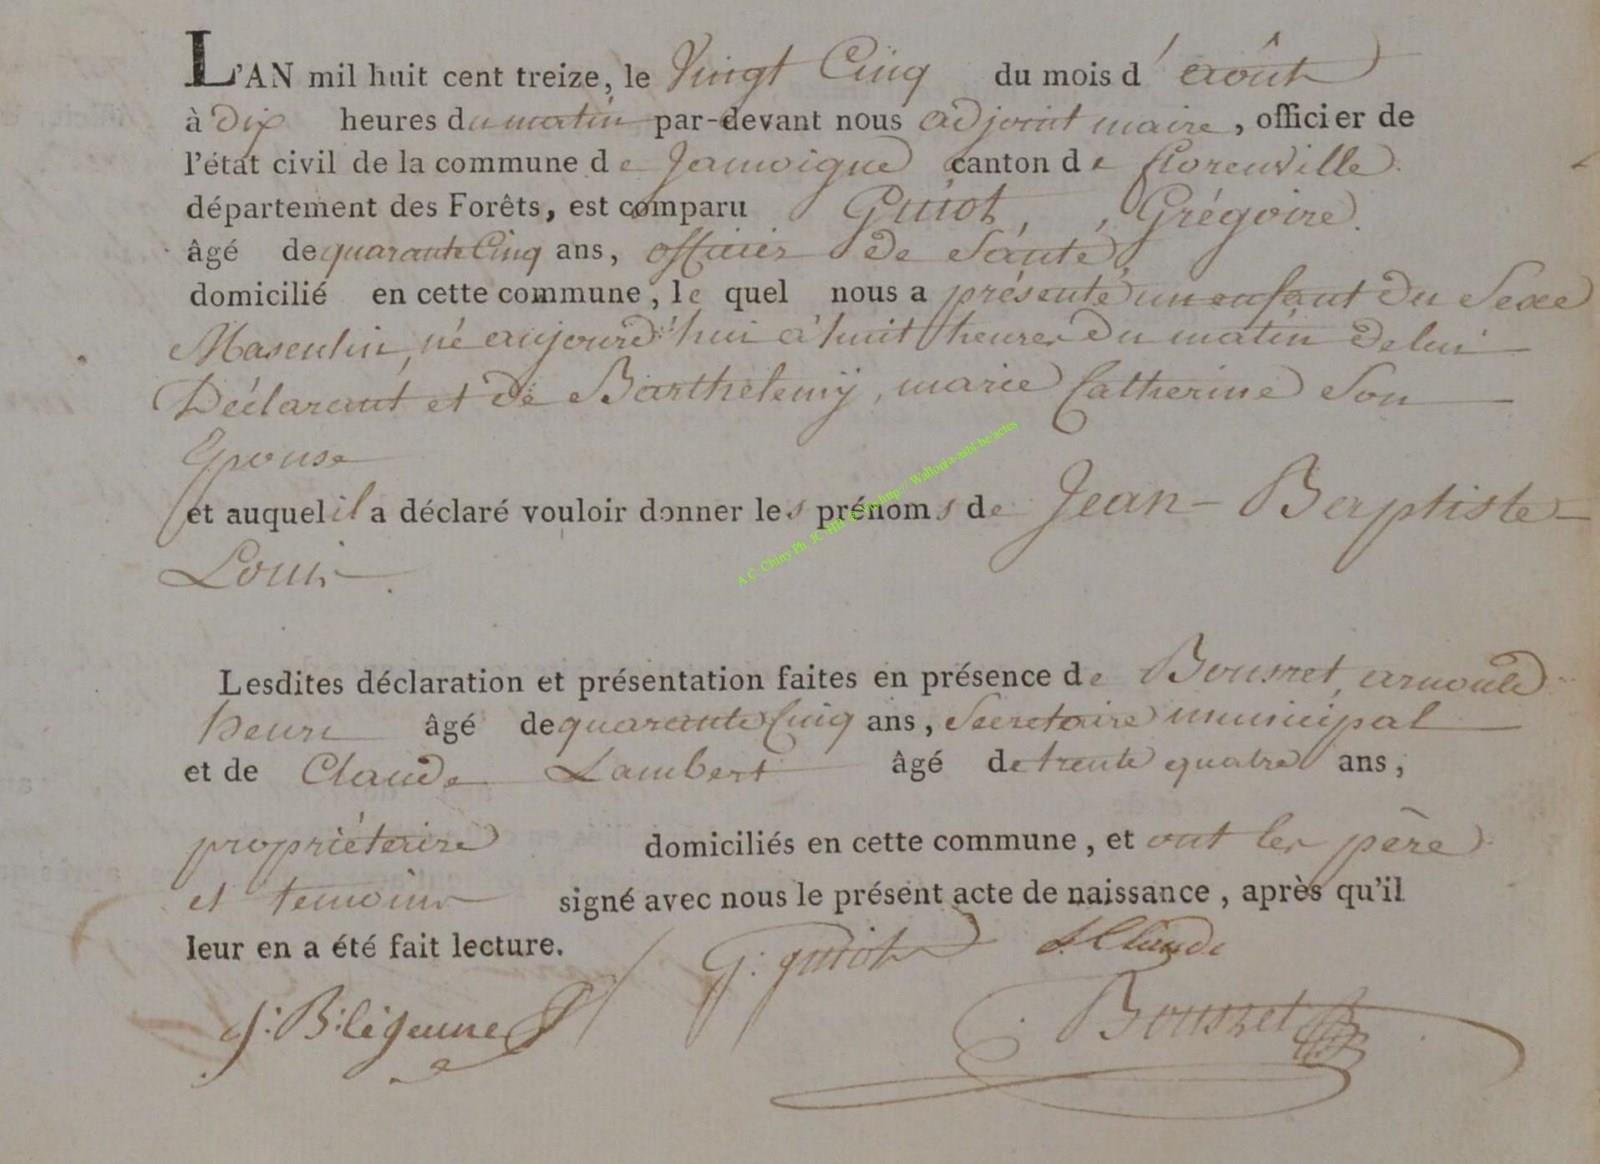 L'AN mil huit cent treize, le Vingt Cinq du mois d'août
à dix heures du matin par-devant nous adjoint maire, officier de
l'état civil de la commune de Jamoigne canton de florenville
département des Forêts, est comparu Guiot, Grégoire.
âgé de quarante Cinq ans, officier de Santé
domicilié en cette commune, le quel nous a présenté un enfant du Sexe
Masculin, né aujourd'hui à huit heures du matin de lui
Déclarant et de Barthelemÿ, marie Catherine Son
Epouse
et auquel il a déclaré vouloir donner les prénoms de Jean-Baptiste-
Louis.
Lesdites déclaration et présentation faites en présence de Bousret, arnould
henri âgé de quarante Cinq ans, Secretaire municipal
et de Claude Lambert âgé de trente quatre ans,
propriétaire domiciliés en cette commune, et ont les père
et temoins signé avec nous le présent acte de naissance, après qu'il
leur en a été fait lecture. G: guiot L Claude
J: B: léjeune Bousret
A.C. Chiny Ph. JC